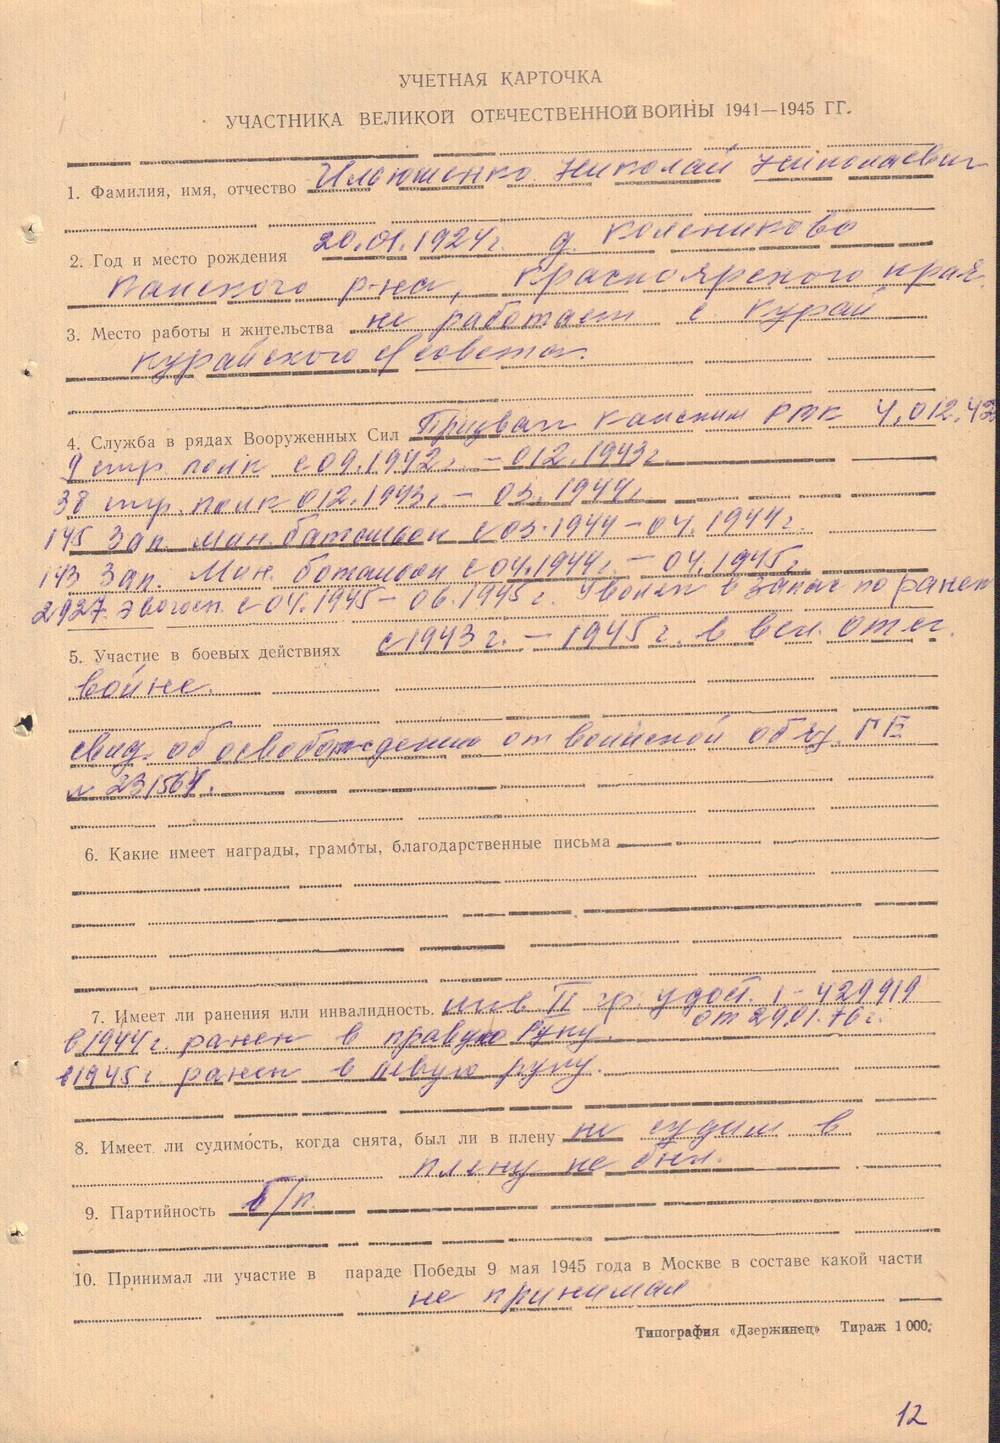 УЧЕТНАЯ КАРТОЧКА
УЧАСТНИКА ВЕЛИКОЙ ОТЕЧЕСТВЕННОЙ ВОЙНЫ 1941—1945 ГГ.
1. Фамилия, имя, отчество Ильюшенко Николай Николаевич
2. Год и место рождения 20.01.1924г. д. Колениково
Канского р-на, Красноярского края.
3. Место работы и жительства не работает с. Курай
Курайского с/совета.
4. Служба в рядах Вооруженных Сил Призван Канским РВК
9 стр. полк с 09.1942г. – 012.1943г
38 стр. полк 012.1943г. – 03.1944г
145 Зап. мин. батальон с 03.1944 – 04.1944г.
143 Зап. Мин. батальон с 04.1944г. – 04.1945г.
2927 эвогосп. с 04.1945 – 06.1945г. Уволен в запас по ранен
5. Участие в боевых действиях с 1943г. – 1945г. в вел. отеч.
войне.
свид. об освобождении от воинской обяз. ГБ
№ 231564.
6. Какие имеет награды, грамоты, благодарственные письма
7. Имеет ли ранения или инвалидность. инв II гр. удост. 1-429919
от 29.01.76г.
в 1944г. ранен в правую руку.
в 1945г ранен в левую руку.
8. Имеет ли судимость, когда снята, был ли в плену не судим в
плену не был.
9. Партийность б/п.
10. Принимал ли участие в параде Победы 9 мая 1945 года в Москве в составе какой части
не принимал
Типография «Дзержинец» Тираж 1 000.
12